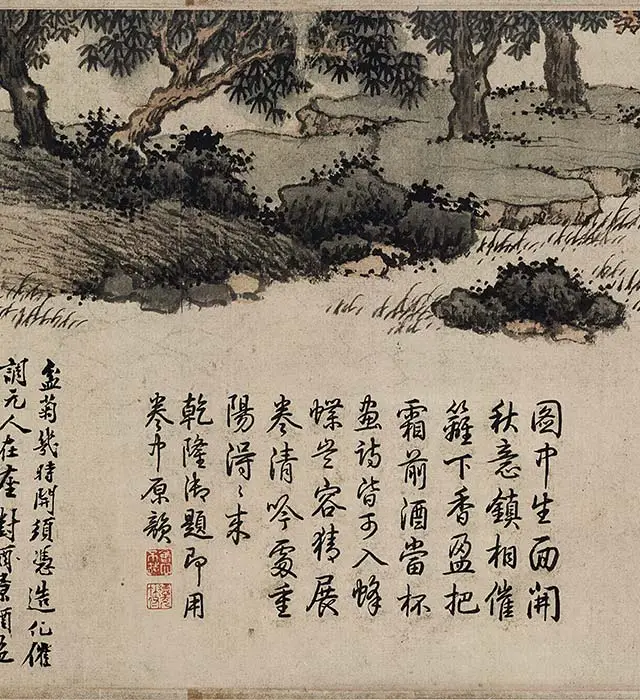 圖中生面開
秋意鎮相催
籬下香盈把
霜前酒當杯
畫詩皆可入蜂
蝶豈容猜展
卷清吟處重
陽得〻來
乾隆御題即用
卷中原韻
盆菊幾時開須憑造化催
調元人在座對景酒